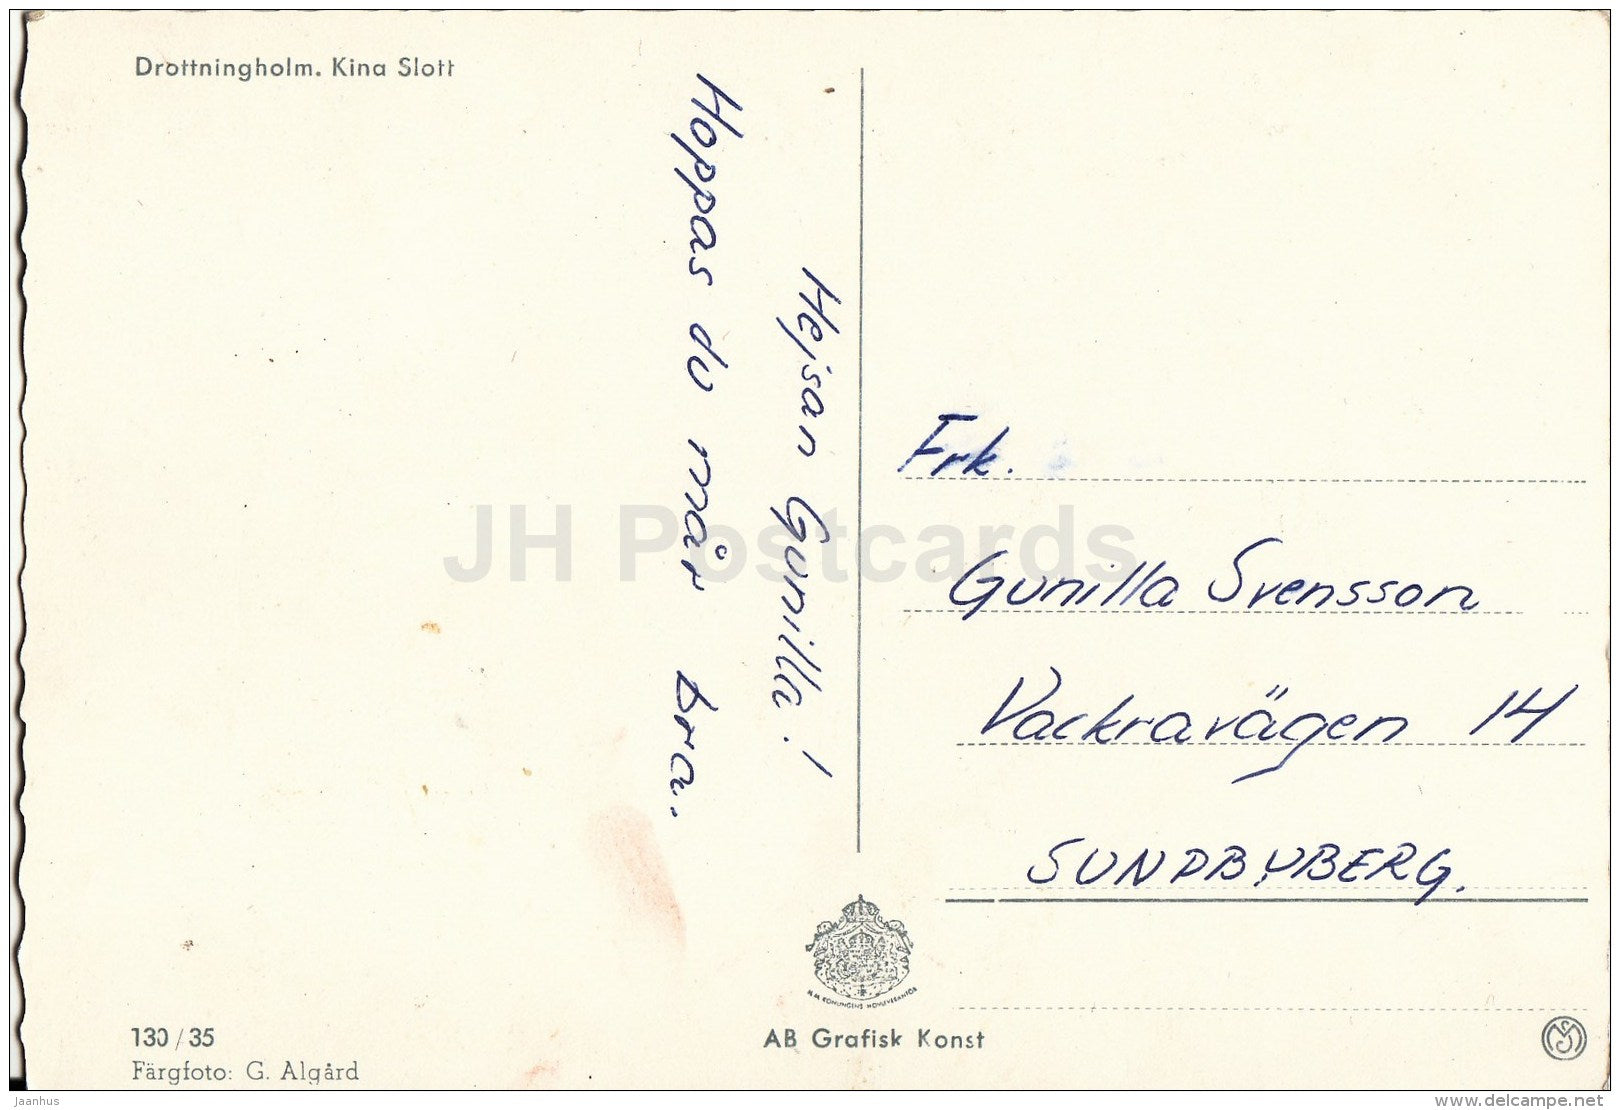 Drottningholm. Kina Slott
Hejsan Gunilla!
Hoppas du mår bra.
Frk.
Gunilla Svensson
Vackravägen 14
SUNDBYBERG.
H.M. KONUNGENS HOVLEVERANTÖR
AB Grafisk Konst
130/35
Färgfoto: G. Algård
JH Postcards
Jaanhus
www.delcampe.net